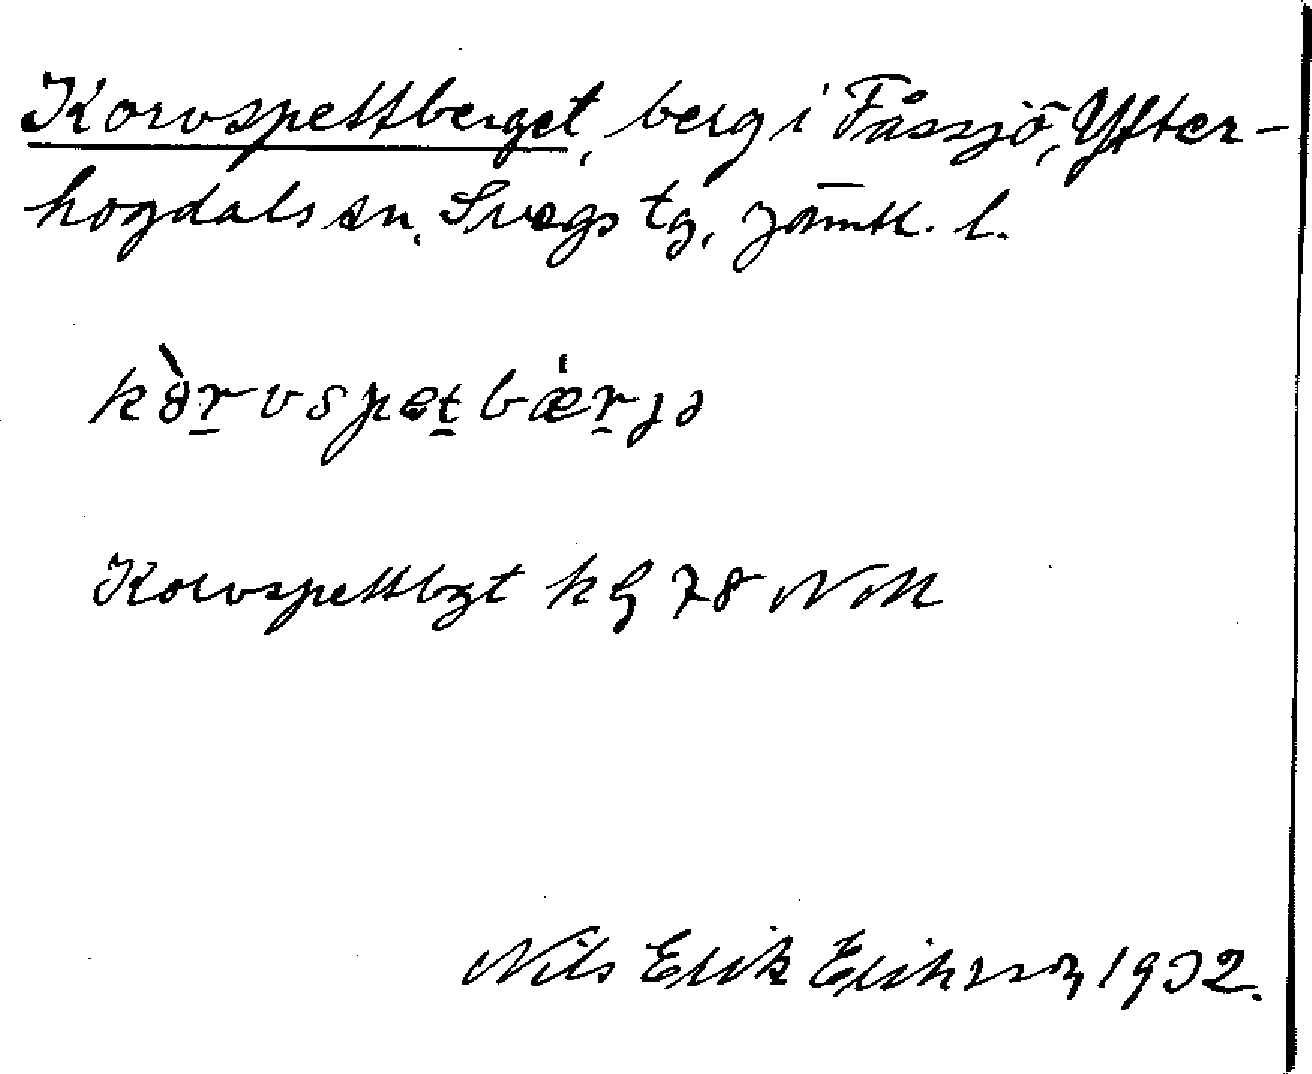 Korvspettberget, berg i Fåssjö, Ytter-
hogdals sn, Svegs tg, Jämtl. l.
kòrvspetbǽrjə
Korvspettbgt kg 78 NM
Nils Erik Eriksson, 1932.